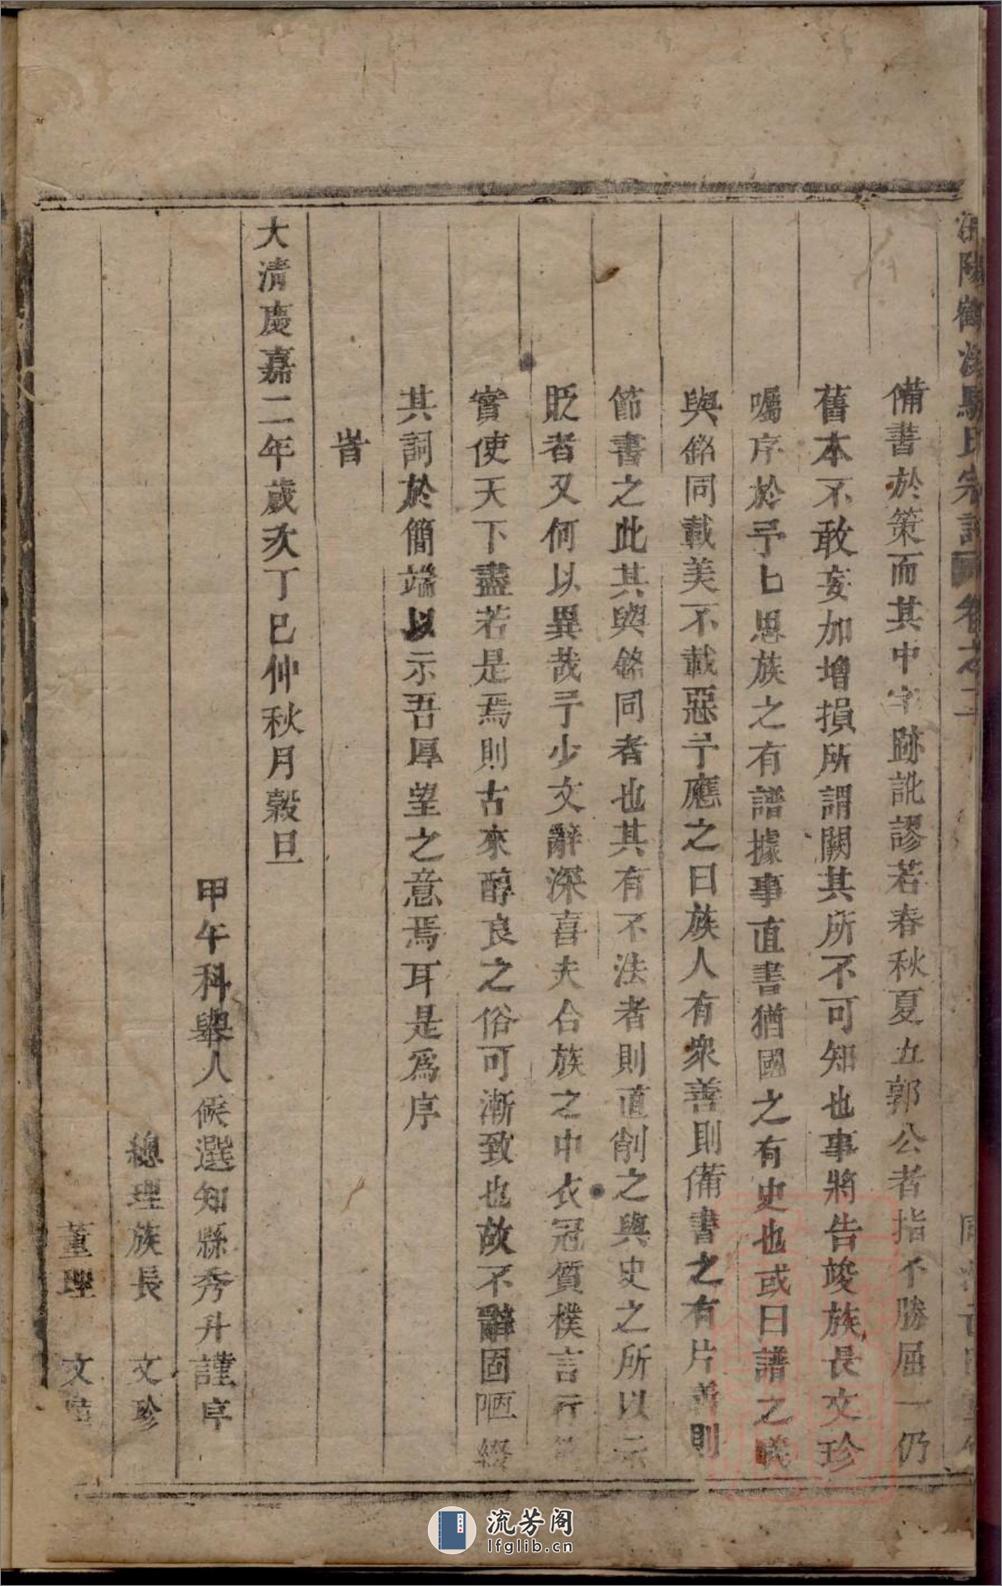 氏宗譜 卷之二
備書於策而其中字跡訛謬若春秋夏五郭公者指不勝屈一仍
舊本不敢妄加增損所謂闕其所不可知也事將告竣族長文珍
囑序於予予思族之有譜據事直書猶國之有史也或曰譜之義
與銘同載美不載惡予應之曰族人有衆善則備書之有片善則
節書之此其與銘同者也其有不法者則直削之與史之所以示
貶者又何以異哉予少文辭深喜夫合族之中衣冠質樸言行
實使天下盡若是焉則古來醇良之俗可漸致也故不辭固陋綴
其詞於簡端以示吾厚望之意焉耳是爲序
旹
大清慶嘉二年歲次丁巳仲秋月穀旦
甲午科舉人候選知縣秀升謹序
總理族長 文珍
董理 文
流芳阁
lfglib.cn